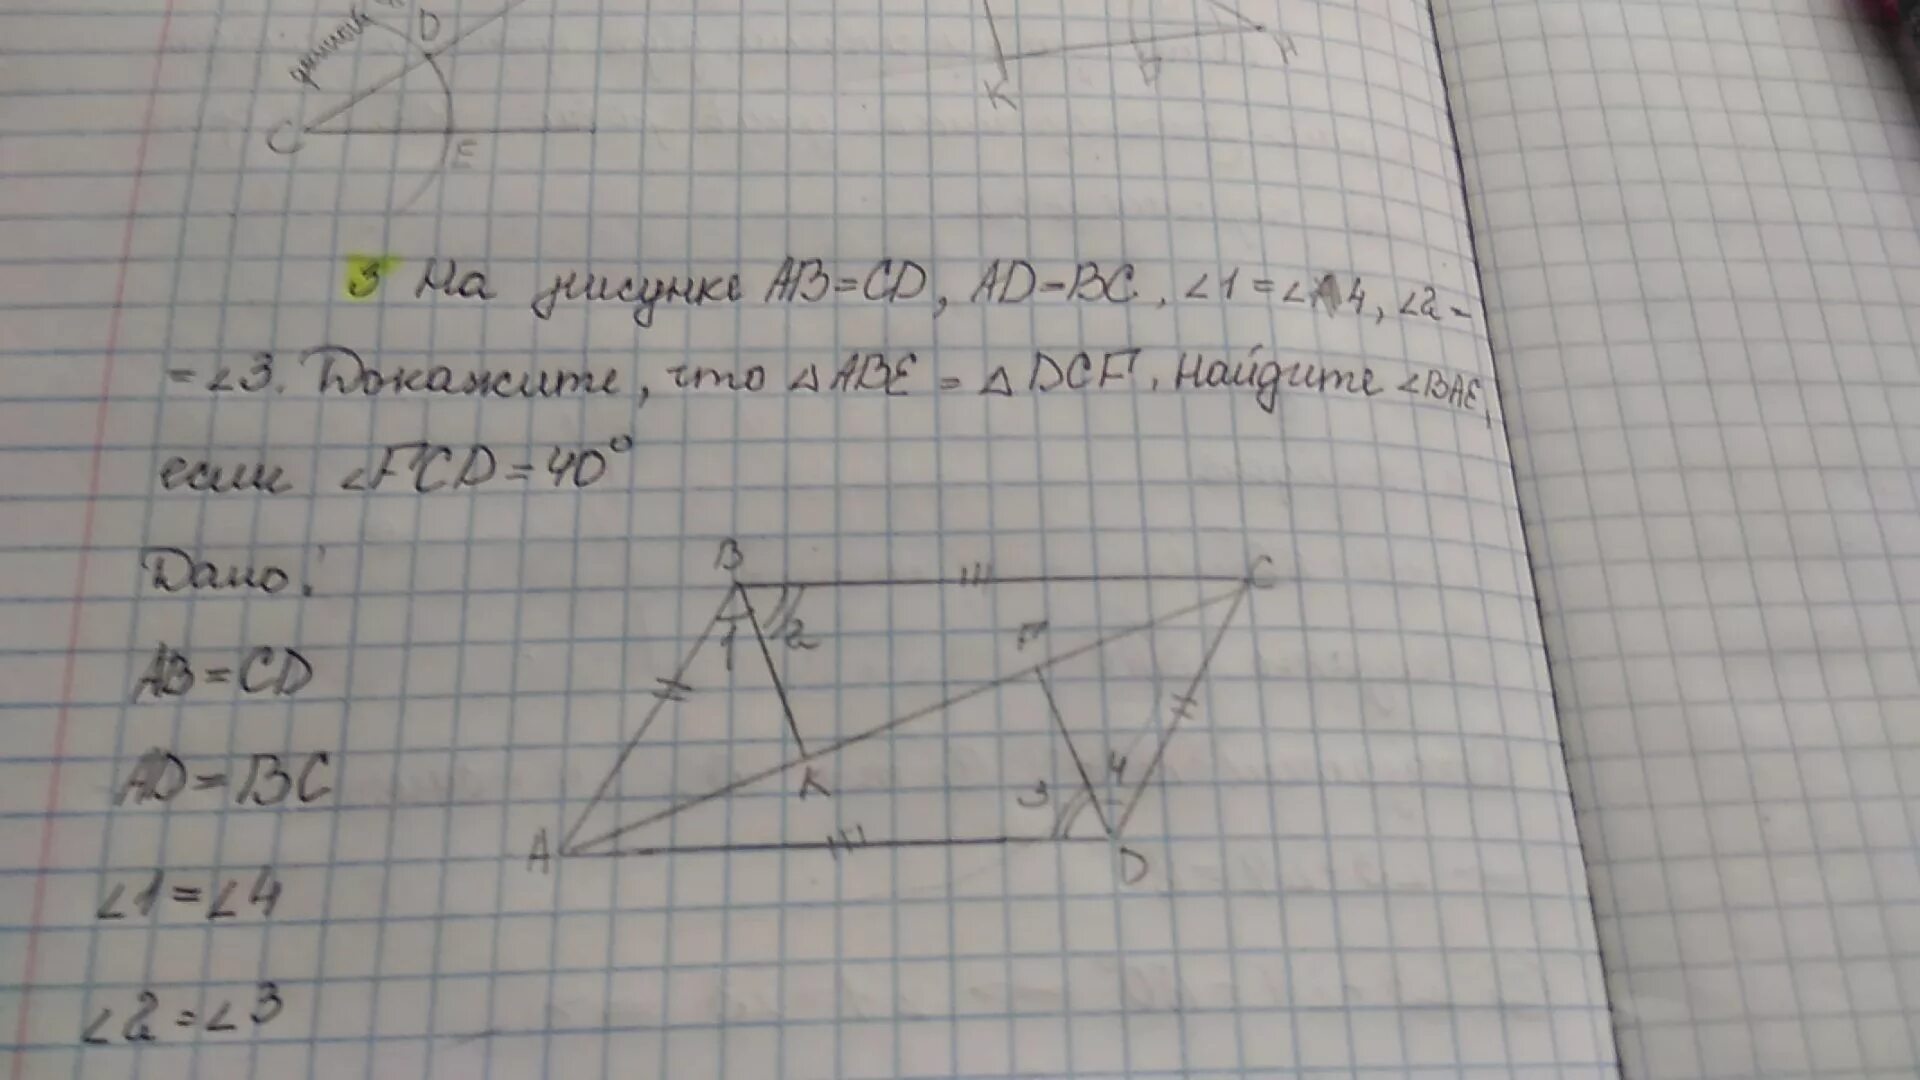 D
C
E
K
H
3 На рисунке AB=CD, AD=BC, ∠1=∠4, ∠2=
=∠3. Докажите, что △ABE = △DCF. Найдите ∠BAE,
если ∠FCD=40°
Дано:
B
C
1
2
F
AB=CD
K
3
4
AD=BC
A
D
∠1=∠4
∠2=∠3